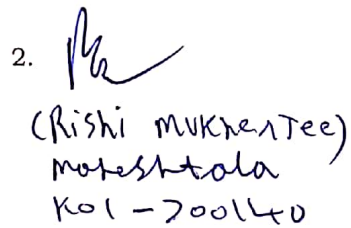 2.
(Rishi MUKherJee)
Maheshtala
Kol - 700140